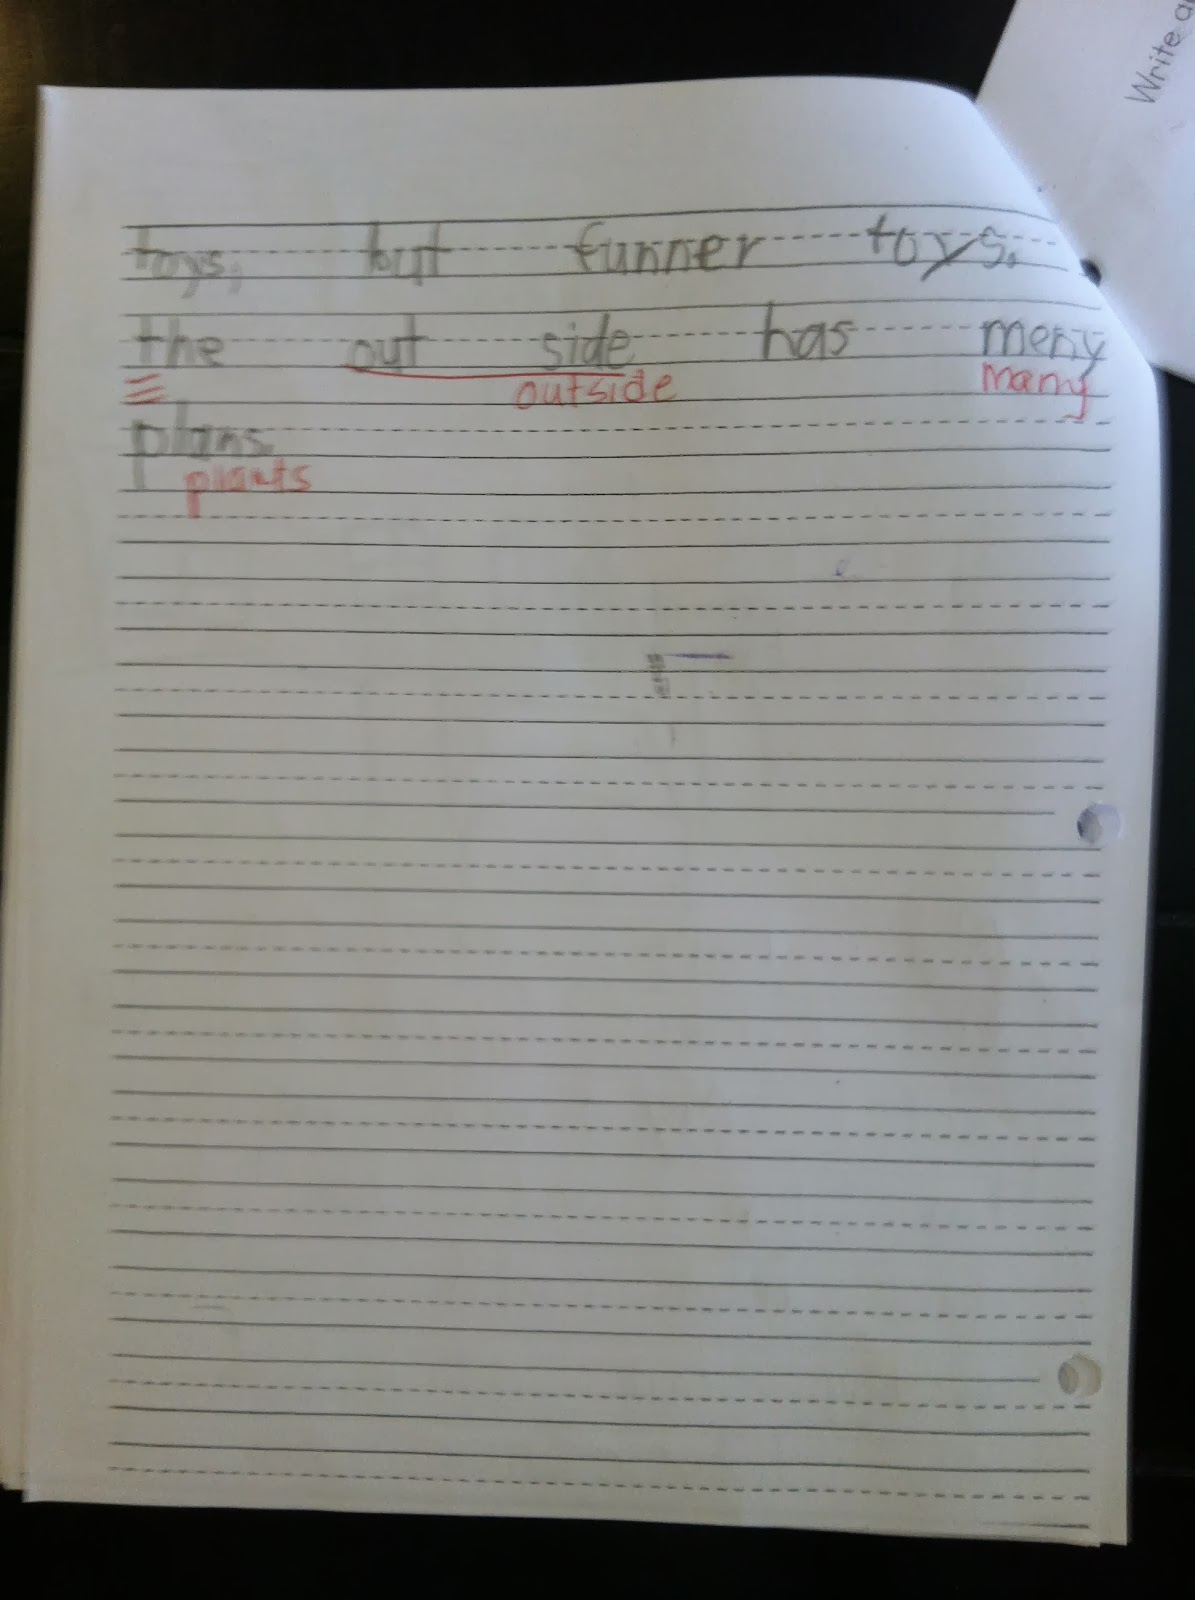 toys, but funner toys.
the out side has meny
outside many
plans
plants
Write a